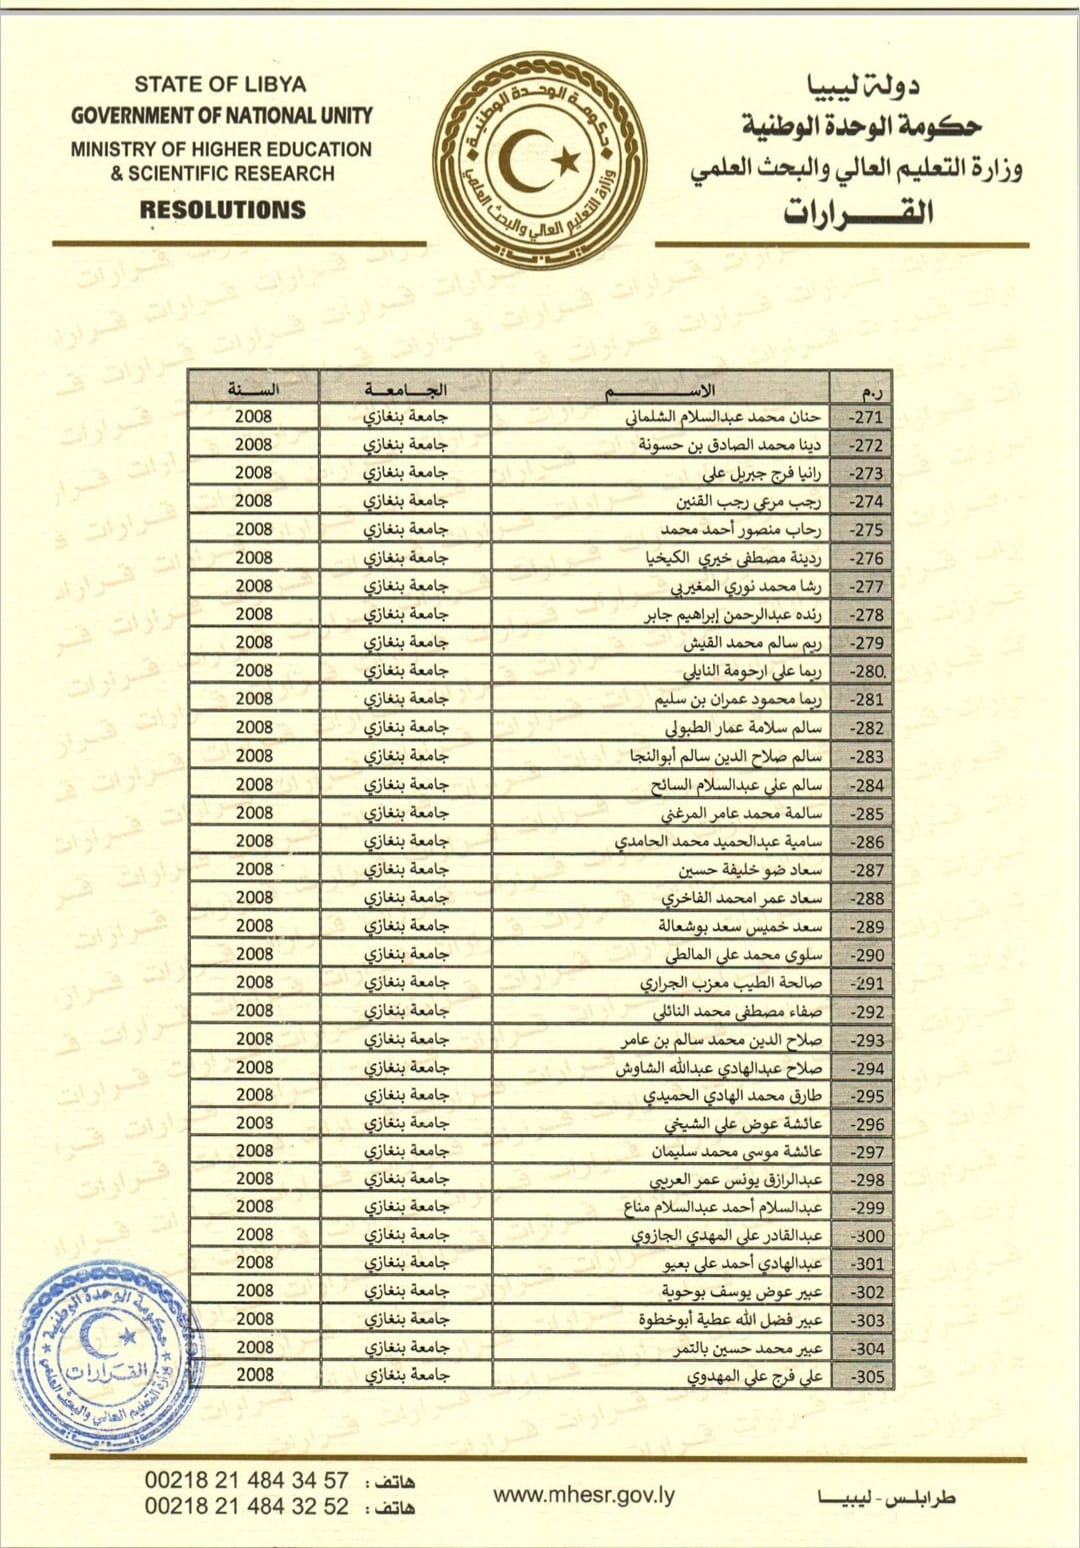 STATE OF LIBYA
GOVERNMENT OF NATIONAL UNITY
MINISTRY OF HIGHER EDUCATION
& SCIENTIFIC RESEARCH
RESOLUTIONS
حكومة الوحدة الوطنية
وزارة التعليم العالي والبحث العلمي
دولة ليبيا
حكومة الوحدة الوطنية
وزارة التعليم العالي والبحث العلمي
القـــرارات
ر.م الاســـــــــم الجـــامعـــة الســـنة
271- حنان محمد عبدالسلام الشلماني جامعة بنغازي 2008
272- دينا محمد الصادق بن حسونة جامعة بنغازي 2008
273- رانيا فرج جبريل علي جامعة بنغازي 2008
274- رجب مرعي رجب القنين جامعة بنغازي 2008
275- رحاب منصور أحمد محمد جامعة بنغازي 2008
276- ردينة مصطفى خيري الكيخيا جامعة بنغازي 2008
277- رشا محمد نوري المغيربي جامعة بنغازي 2008
278- رنده عبدالرحمن إبراهيم جابر جامعة بنغازي 2008
279- ريم سالم محمد القيش جامعة بنغازي 2008
280- ريما علي ارحومة النايلي جامعة بنغازي 2008
281- ريما محمود عمران بن سليم جامعة بنغازي 2008
282- سالم سلامة عمار الطبولي جامعة بنغازي 2008
283- سالم صلاح الدين سالم أبوالنجا جامعة بنغازي 2008
284- سالم علي عبدالسلام السائح جامعة بنغازي 2008
285- سالمة محمد عامر المرغني جامعة بنغازي 2008
286- سامية عبدالحميد محمد الحامدي جامعة بنغازي 2008
287- سعاد ضو خليفة حسين جامعة بنغازي 2008
288- سعاد عمر امحمد الفاخري جامعة بنغازي 2008
289- سعد خميس سعد بوشعالة جامعة بنغازي 2008
290- سلوى محمد علي المالطي جامعة بنغازي 2008
291- صالحة الطيب معزب الجراري جامعة بنغازي 2008
292- صفاء مصطفى محمد النائلي جامعة بنغازي 2008
293- صلاح الدين محمد سالم بن عامر جامعة بنغازي 2008
294- صلاح عبدالهادي عبدالله الشاوش جامعة بنغازي 2008
295- طارق محمد الهادي الحميدي جامعة بنغازي 2008
296- عائشة عوض علي الشيخي جامعة بنغازي 2008
297- عائشة موسى محمد سليمان جامعة بنغازي 2008
298- عبدالرازق يونس عمر العربي جامعة بنغازي 2008
299- عبدالسلام أحمد عبدالسلام مناع جامعة بنغازي 2008
300- عبدالقادر علي المهدي الجازوي جامعة بنغازي 2008
301- عبدالهادي أحمد علي بعيو جامعة بنغازي 2008
302- عبير عوض يوسف بوحوية جامعة بنغازي 2008
303- عبير فضل الله عطية أبوخطوة جامعة بنغازي 2008
304- عبير محمد حسين بالتمر جامعة بنغازي 2008
305- علي فرج علي المهدوي جامعة بنغازي 2008
حكومة الوحدة الوطنية
القرارات
وزارة التعليم العالي والبحث العلمي
هاتف : 00218 21 484 34 57
هاتف : 00218 21 484 32 52
www.mhesr.gov.ly
طرابلس - ليبيـــا